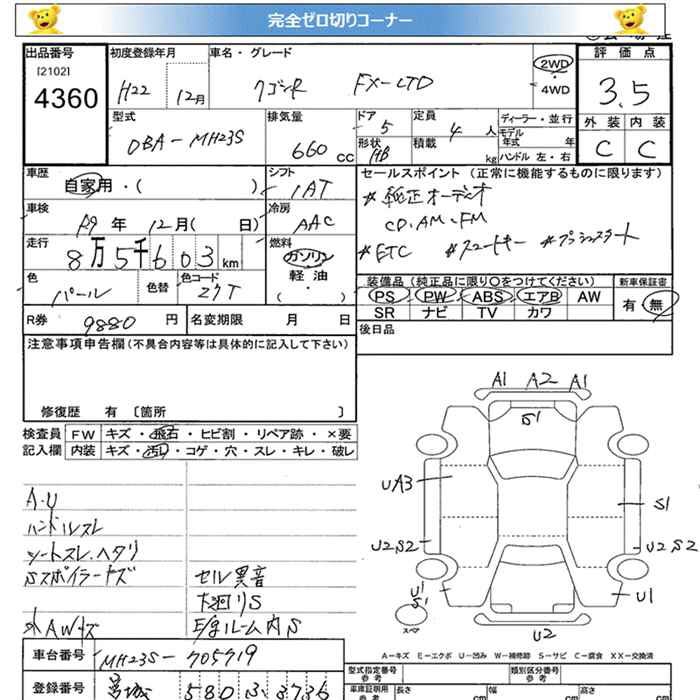 完全ゼロ切りコーナー
出品番号
[2102]
4360
初度登録年月
H22 12月
車名・グレード
ワゴンR FX-LTD
2WD
4WD
評価点
3.5
外装 内装
C C
型式
DBA-MH23S
排気量
660 CC
ドア
5
形状
HB
定員
4 人
積載
kg
ディーラー・並行
モデル年式 年
ハンドル 左・右
車歴
自家用・( )
シフト
IAT
車検
R9年 12月( 日)
冷房
AAC
走行
8万5千603km
燃料
ガソリン
軽油
( ・ )
色
パール
色替
色コード
Z7T
セールスポイント(正常に機能するものに限ります)
*純正オーディオ
CD、AM、FM
*ETC *スマートキー *プッシュスタート
装備品(純正品に限り〇をつけてください)
PS PW ABS エアB AW
SR ナビ TV カワ
新車保証書
有 無
R券 9880円
名変期限 月 日
後日品
注意事項申告欄(不具合内容等は具体的に記入して下さい)
修復歴 有 〔箇所 〕
検査員記入欄
FW キズ・飛石・ヒビ割・リペア跡・×要
内装 キズ・汚レ・コゲ・穴・スレ・キレ・破レ
A・U
ハンドルスレ
シートスレ、ヘタリ
Rスポイラーキズ
セル異音
下廻りS
外AWキズ
E/gルーム内S
A1 A2 A1
S1
UA3
S1
U2S2
U2S2
U1
S1
U1
スペア
U2
A-キズ E-エクボ U-凹み W-補修跡 S-サビ C-腐食 XX-交換済
車台番号
MH23S-705719
登録番号
宮城 580 ふ 3736
型式指定番号
参考
類別区分番号
参考
車庫証明用
参考
長さ cm
幅 cm
高さ cm